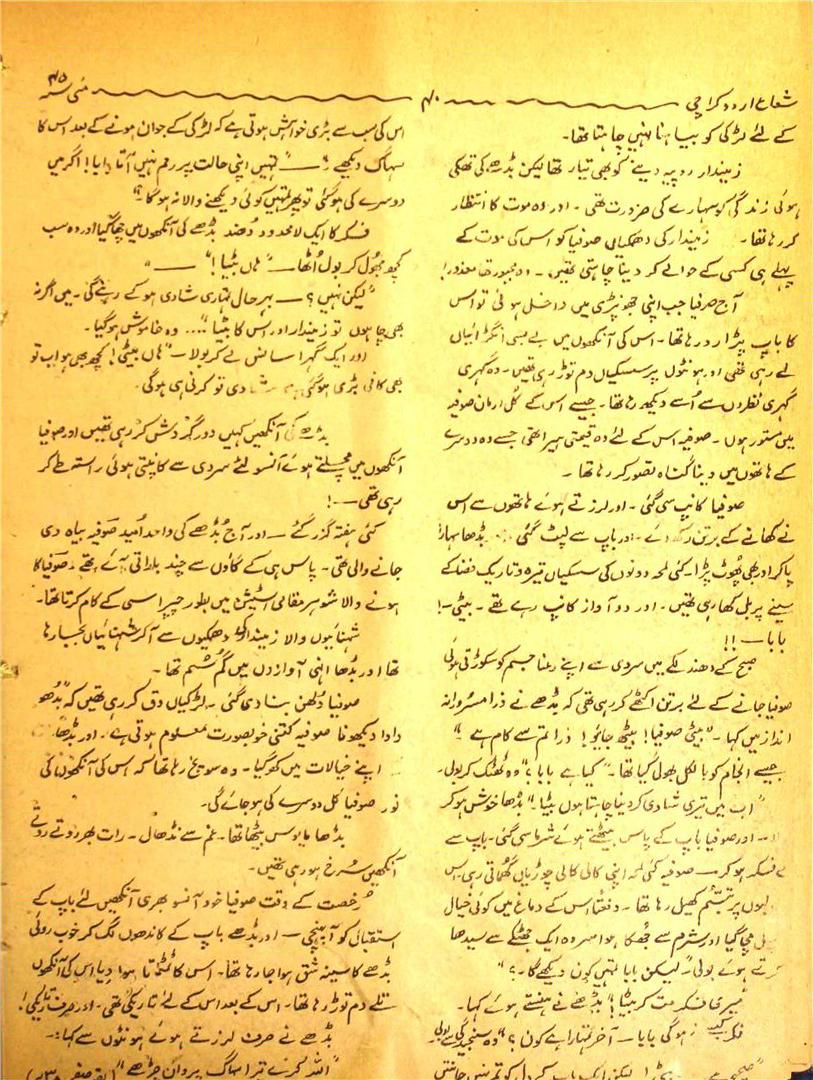 شعاع اردو کراچی
۴۰
مئی ۴۵ء
کے لئے لڑکی کو بیاہنا نہیں چاہتا تھا۔
زمیندار روپیہ دینے کو بھی تیار تھا لیکن بڈھے کی تھکی
ہوئی زندگی کو سہارے کی ضرورت تھی ۔ اور وہ موت کا انتظار
کر رہا تھا۔ زمیندار کی دھمکیاں صوفیا کو اس کی موت کے
پہلے ہی کسی کے حوالے کر دینا چاہتی تھیں ۔ وہ مجبور تھا معذور!
آج صوفیا جب اپنی جھونپڑی میں داخل ہوئی تو اس
کا باپ پڑا رو رہا تھا ۔ اس کی آنکھوں میں بے بسی انگڑائیاں
لے رہی تھی اور ہونٹوں پر سسکیاں دم توڑ رہی تھیں ۔ وہ گہری
گہری نظروں سے اُسے دیکھ رہا تھا ۔ جیسے اس کے کُل ارمان صوفیہ
میں مستور ہوں ۔ صوفیہ اس کے لئے وہ قیمتی ہیرا تھی جسے وہ دوسرے
کے ہاتھوں میں دینا گناہ تصور کر رہا تھا ۔
صوفیا کانپ سی گئی ۔ اور لرزتے ہوئے ہاتھوں سے اس
نے کھانے کے برتن رکھ دئے ۔ اور باپ سے لپٹ گئی بڈھا سہارا
پا کر اور بھی پھوٹ پڑا ۔ کئی لمحہ دونوں کی سسکیاں تیرہ و تاریک فضا کے
سینے پر بل کھا رہی تھیں ۔ اور دو آواز کانپ رہے تھے ۔ بیٹی —!
بابا — !!
صبح کے دھندلکے میں سردی سے اپنے رعنا جسم کو سکوڑتی ہوئی
صوفیا جانے کے لئے برتن اکٹھے کر رہی تھی کہ بڈھے نے ذرا مسرورانہ
انداز میں کہا ۔ "بیٹی صوفیا! بیٹھ جائیو! ذرا تم سے کام ہے"
جیسے انجام کو بالکل بھول گیا تھا ۔ "کیا ہے بابا؟" وہ ٹھٹک کر بولی۔
"اب میں تیری شادی کر دینا چاہتا ہوں بیٹا!" بڈھا خوش ہو کر
اور صوفیا باپ کے پاس بیٹھتے ہوئے شرما سی گئی ۔ باپ سے
بے فکر ہو کر — صوفیہ کئی لمحہ اپنی کالی کالی چوڑیاں گھماتی رہی۔ اس
لبوں پر تبسّم کھیل رہا تھا ۔ دفعتاً اس کے دماغ میں کوئی خیال
مچا گیا اور شرم سے جُھکا ہوا سر وہ ایک جھٹکے سے سیدھا
کرتے ہوئے بولی ۔ "لیکن بابا تمہیں کون دیکھے گا ۔؟"
"میری فکر مت کر بیٹا!" بڈھے نے ہنستے ہوئے کہا۔
فکر کیسے نہ ہوگی بابا — آخر تمہارا ہے کون؟" وہ سنجیدگی سے بولی
لیکن ایک باپ کے دل کو تم نہیں جانتیں
اس کی سب سے بڑی خواہش ہوتی ہے کہ لڑکی کے جوان ہونے کے بعد اس کا
سہاگ دیکھے ؟ — "تمہیں اپنی حالت پر رحم نہیں آتا بابا! اگر میں
دوسرے کی ہو گئی تو پھر تمہیں کوئی دیکھنے والا نہ ہوگا ۔"
فکر کا ایک لامحدود دُھند بڈھے کی آنکھوں میں چھا گیا اور وہ سب
کچھ بھول کر بول اُٹھا — "ہاں بیٹیا!" —
"لیکن نہیں؟ — بہرحال تمہاری شادی ہو کے رہے گی ۔ میں اگر نہ
بھی چاہوں تو زمیندار اور اس کا بیٹا"... وہ خاموش ہو گیا ۔
اور ایک گہرا سانس لے کر بولا — "ہاں بیٹی! کچھ بھی ہو اب تو
بھی کافی بڑی ہو گئی شادی تو کرنی ہی ہوگی.
بڈھے کی آنکھیں کہیں دور گردش کر رہی تھیں اور صوفیا
آنکھوں میں مچلتے ہوئے آنسو لئے سردی سے کانپتی ہوئی راستہ طے کر
رہی تھی — !
کئی ہفتہ گزر گئے — اور آج بُڈھے کی واحد اُمید صوفیہ بیاہ دی
جانے والی تھی ۔ پاس ہی کے گاؤں سے چند براتی آئے تھے ۔ صوفیا کا
ہونے والا شوہر مقامی اسٹیشن میں بطور چپراسی کے کام کرتا تھا۔
شہنائیوں والا زمیندار کی دھمکیوں سے آ کر شہنائیاں بجا رہا
تھا اور بُڈھا اپنی آوازوں میں گم سُم تھا ۔
صوفیا دلھن بنا دی گئی ۔ لڑکیاں دق کر رہی تھیں کہ "بڈھو
دادا دیکھونا صوفیہ کتنی خوبصورت معلوم ہوتی ہے ۔ اور بڈھا
اپنے خیالات میں کھو گیا ۔ وہ سوچ رہا تھا کہ اس کی آنکھوں کی
نور صوفیا کل دوسرے کی ہو جائے گی۔
بڈھا مایوس بیٹھا تھا ۔ غم سے نڈھال ۔ رات بھر روتے روتے
آنکھیں سُرخ ہو رہی تھیں۔
رخصت کے وقت صوفیا خود آنسو بھری آنکھیں لئے باپ کے
استقبال کو آ پہنچی — اور بڈھے باپ کے کاندھوں لگ کر خوب روئی
بڈھے کا سینہ شق ہوا جا رہا تھا ۔ اس کا ٹمٹماتا ہوا دیا اس کی آنکھوں
تلے دم توڑ رہا تھا ۔ اس کے بعد اس کے لئے تاریکی تھی ۔ اور صرف تاریکی!
بڈھے نے صرف لرزتے ہوئے ہونٹوں سے کہا :-
"اللہ کرے تیرا سہاگ پروان چڑھے"